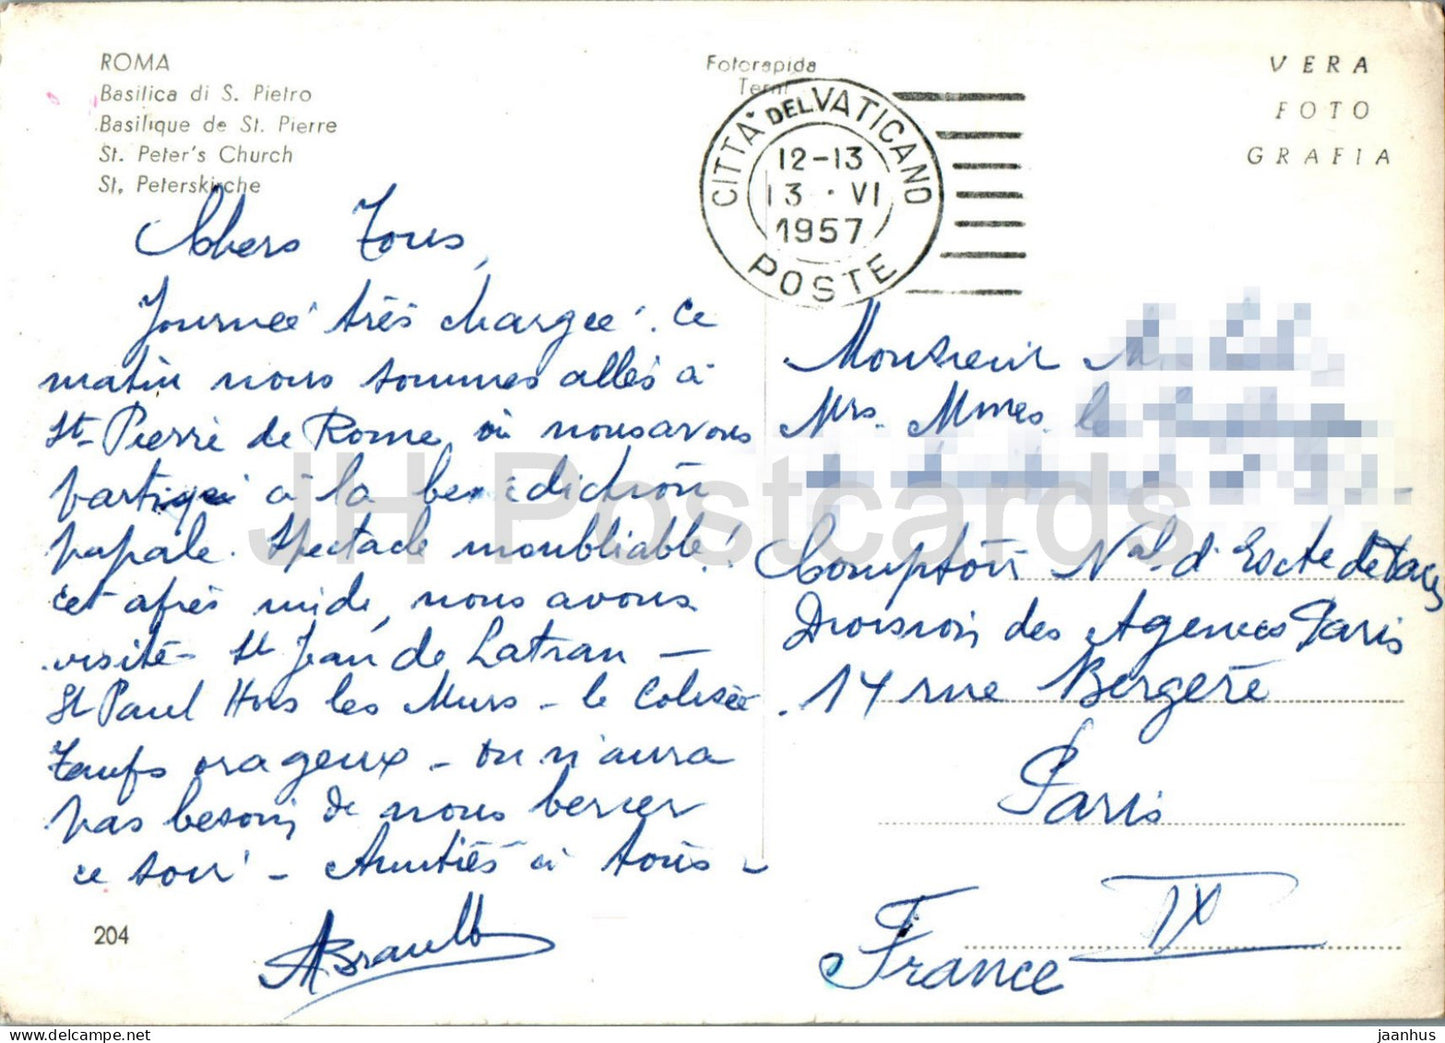 ROMA
Basilica di S. Pietro
Basilique de St. Pierre
St. Peter's Church
St. Peterskirche
Fotorapida
Terni
VERA
FOTO
GRAFIA
CITTA' DEL VATICANO
12-13
13 · VI
1957
POSTE
Chers Tous,
Journée très chargée. Ce
matin nous sommes allés à
St-Pierre de Rome, où nous avons
participé à la bénédiction
papale. Spectacle inoubliable!
cet après midi, nous avons
visité St Jean de Latran —
St Paul Hors les Murs - le Colisée
Temps orageux - on n'aura
pas besoin de nous bercer
ce soir - Amitiés à tous -
204
Monsieur
Mrs. Mmes. le
Comptoir Nal d'Escte de Paris
Division des Agences Paris
14 rue Bergère
Paris
IX
France
JH Postcards
jaanhus
delcampe.net